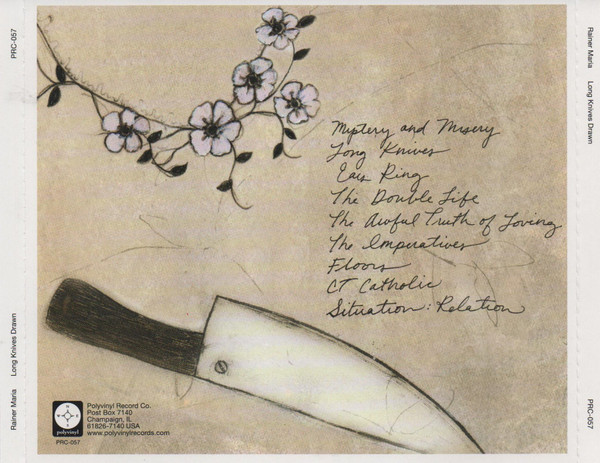 PRC-057
Rainer Maria Long Knives Drawn
Mystery and Misery
Long Knives
Ears Ring
The Double Life
The Awful Truth of Loving
The Imperatives
Floors
CT Catholic
Situation: Relation
polyvinyl
PRC-057
Polyvinyl Record Co.
Post Box 7140
Champaign, IL
61826-7140 USA
www.polyvinylrecords.com
Rainer Maria Long Knives Drawn
PRC-057